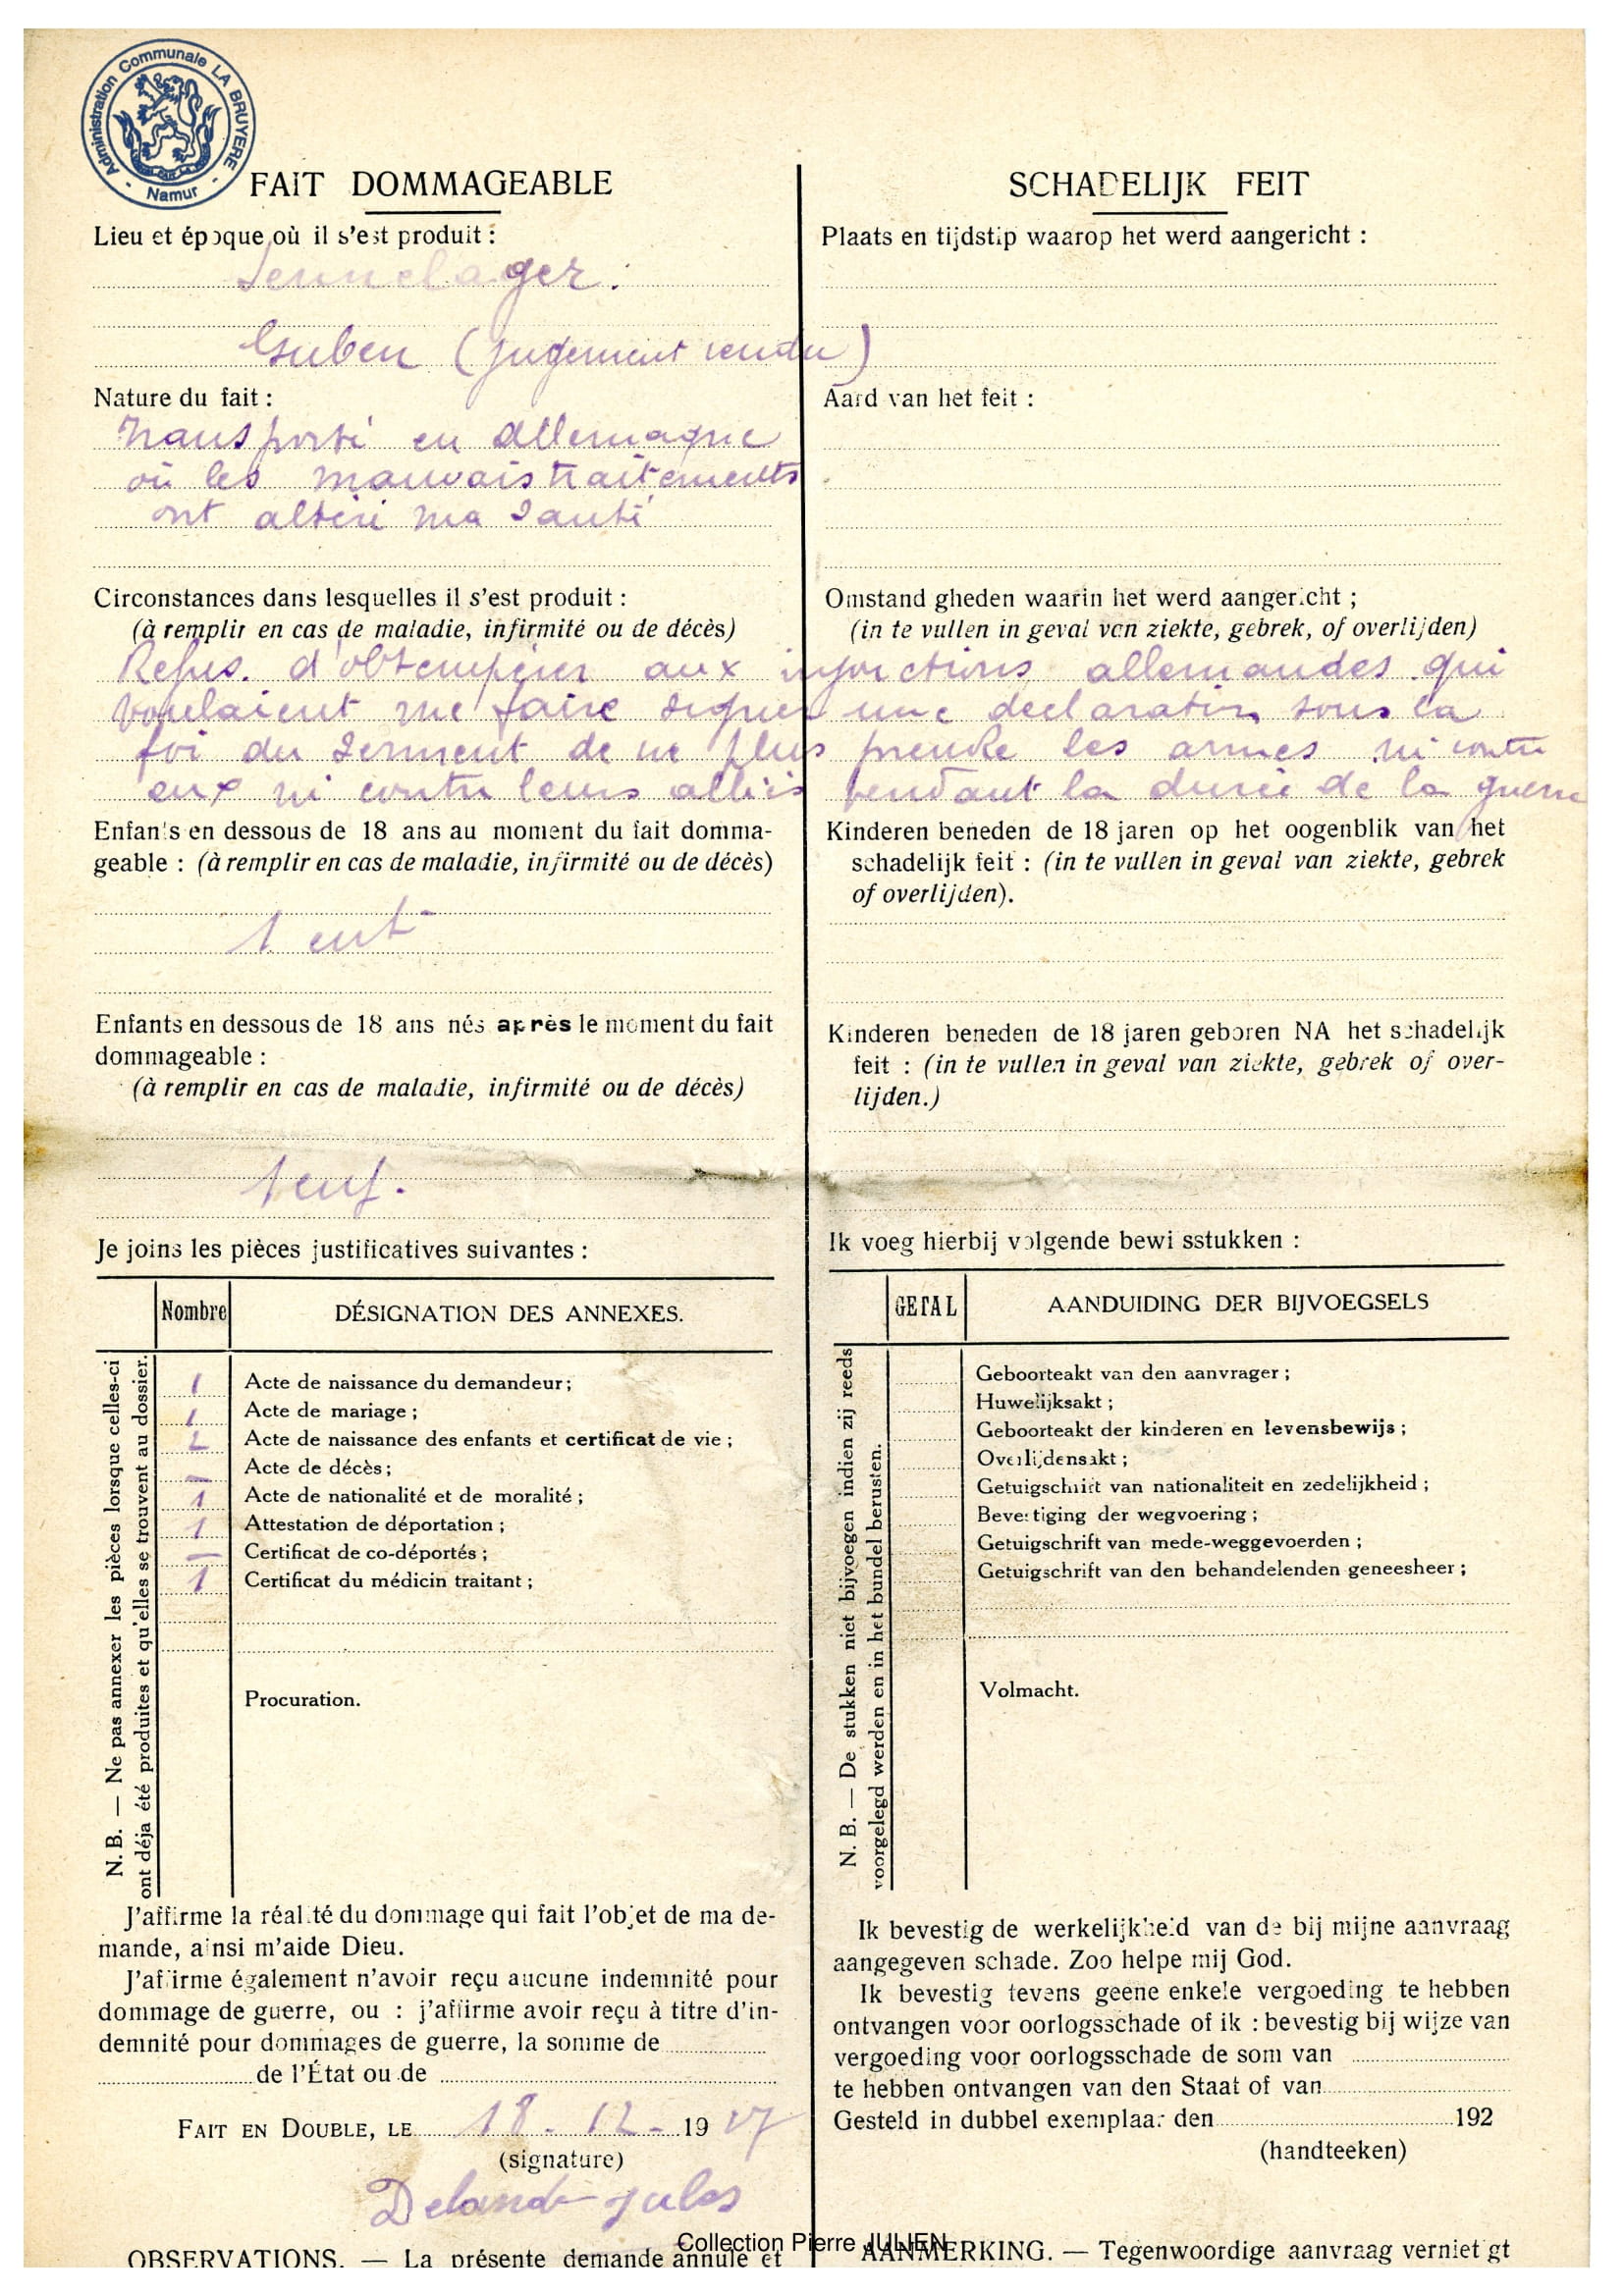 Administration Communale LA BRUYERE
- Namur -
FAIT DOMMAGEABLE
Lieu et époque où il s'est produit :
Sennelager.
Guben (jugement rendu)
Nature du fait :
Transporté en Allemagne
où les mauvais traitements
ont altéré ma santé
Circonstances dans lesquelles il s'est produit :
(à remplir en cas de maladie, infirmité ou de décès)
Refus d'obtempérer aux injonctions allemandes qui
voulaient me faire signer une declaration sous la
foi du serment de ne plus prendre les armes ni contre
eux ni contre leurs alliés pendant la durée de la guerre
Enfants en dessous de 18 ans au moment du fait domma-
geable : (à remplir en cas de maladie, infirmité ou de décès)
1 enft
Enfants en dessous de 18 ans nés après le moment du fait
dommageable :
(à remplir en cas de maladie, infirmité ou de décès)
1 enf.
Je joins les pièces justificatives suivantes :
Nombre DÉSIGNATION DES ANNEXES.
N. B. — Ne pas annexer les pièces lorsque celles-ci
ont déja été produites et qu'elles se trouvent au dossier.
1 Acte de naissance du demandeur ;
1 Acte de mariage ;
2 Acte de naissance des enfants et certificat de vie ;
— Acte de décès ;
1 Acte de nationalité et de moralité ;
1 Attestation de déportation ;
— Certificat de co-déportés ;
1 Certificat du médicin traitant ;
Procuration.
J'affirme la réalité du dommage qui fait l'objet de ma de-
mande, ainsi m'aide Dieu.
J'affirme également n'avoir reçu aucune indemnité pour
dommage de guerre, ou : j'affirme avoir reçu à titre d'in-
demnité pour dommages de guerre, la somme de
de l'État ou de
FAIT EN DOUBLE, LE 18 - 12 - 1927
(signature)
Delande Jules
OBSERVATIONS. — La présente demande annule et
SCHADELIJK FEIT
Plaats en tijdstip waarop het werd aangericht :
Aard van het feit :
Omstand gheden waarin het werd aangericht ;
(in te vullen in geval van ziekte, gebrek, of overlijden)
Kinderen beneden de 18 jaren op het oogenblik van het
schadelijk feit : (in te vullen in geval van ziekte, gebrek
of overlijden).
Kinderen beneden de 18 jaren geboren NA het schadelijk
feit : (in te vullen in geval van ziekte, gebrek of over-
lijden.)
Ik voeg hierbij volgende bewi sstukken :
GETAL AANDUIDING DER BIJVOEGSELS
N. B. — De stukken niet bijvoegen indien zij reeds
voorgelegd werden en in het bundel berusten.
Geboorteakt van den aanvrager ;
Huwelijksakt ;
Geboorteakt der kinderen en levensbewijs ;
Overlijdensakt ;
Getuigschrift van nationaliteit en zedelijkheid ;
Bevestiging der wegvoering ;
Getuigschrift van mede-weggevoerden ;
Getuigschrift van den behandelenden geneesheer ;
Volmacht.
Ik bevestig de werkelijkheid van de bij mijne aanvraag
aangegeven schade. Zoo helpe mij God.
Ik bevestig tevens geene enkele vergoeding te hebben
ontvangen voor oorlogsschade of ik : bevestig bij wijze van
vergoeding voor oorlogsschade de som van
te hebben ontvangen van den Staat of van
Gesteld in dubbel exemplaar den 192
(handteeken)
AANMERKING. — Tegenwoordige aanvraag verniet gt
Collection Pierre JULIEN